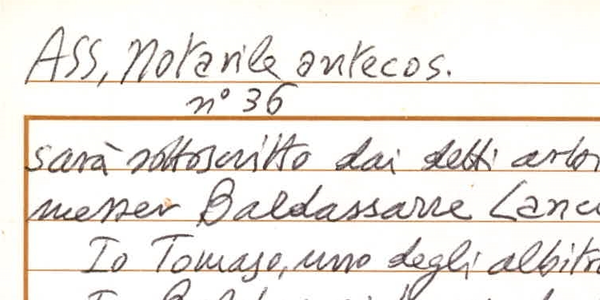 ASS, Notarile antecos.
n° 36
sarà sottoscritto dai detti
messer Baldassarre
Io Tomaso, uno degli
Io